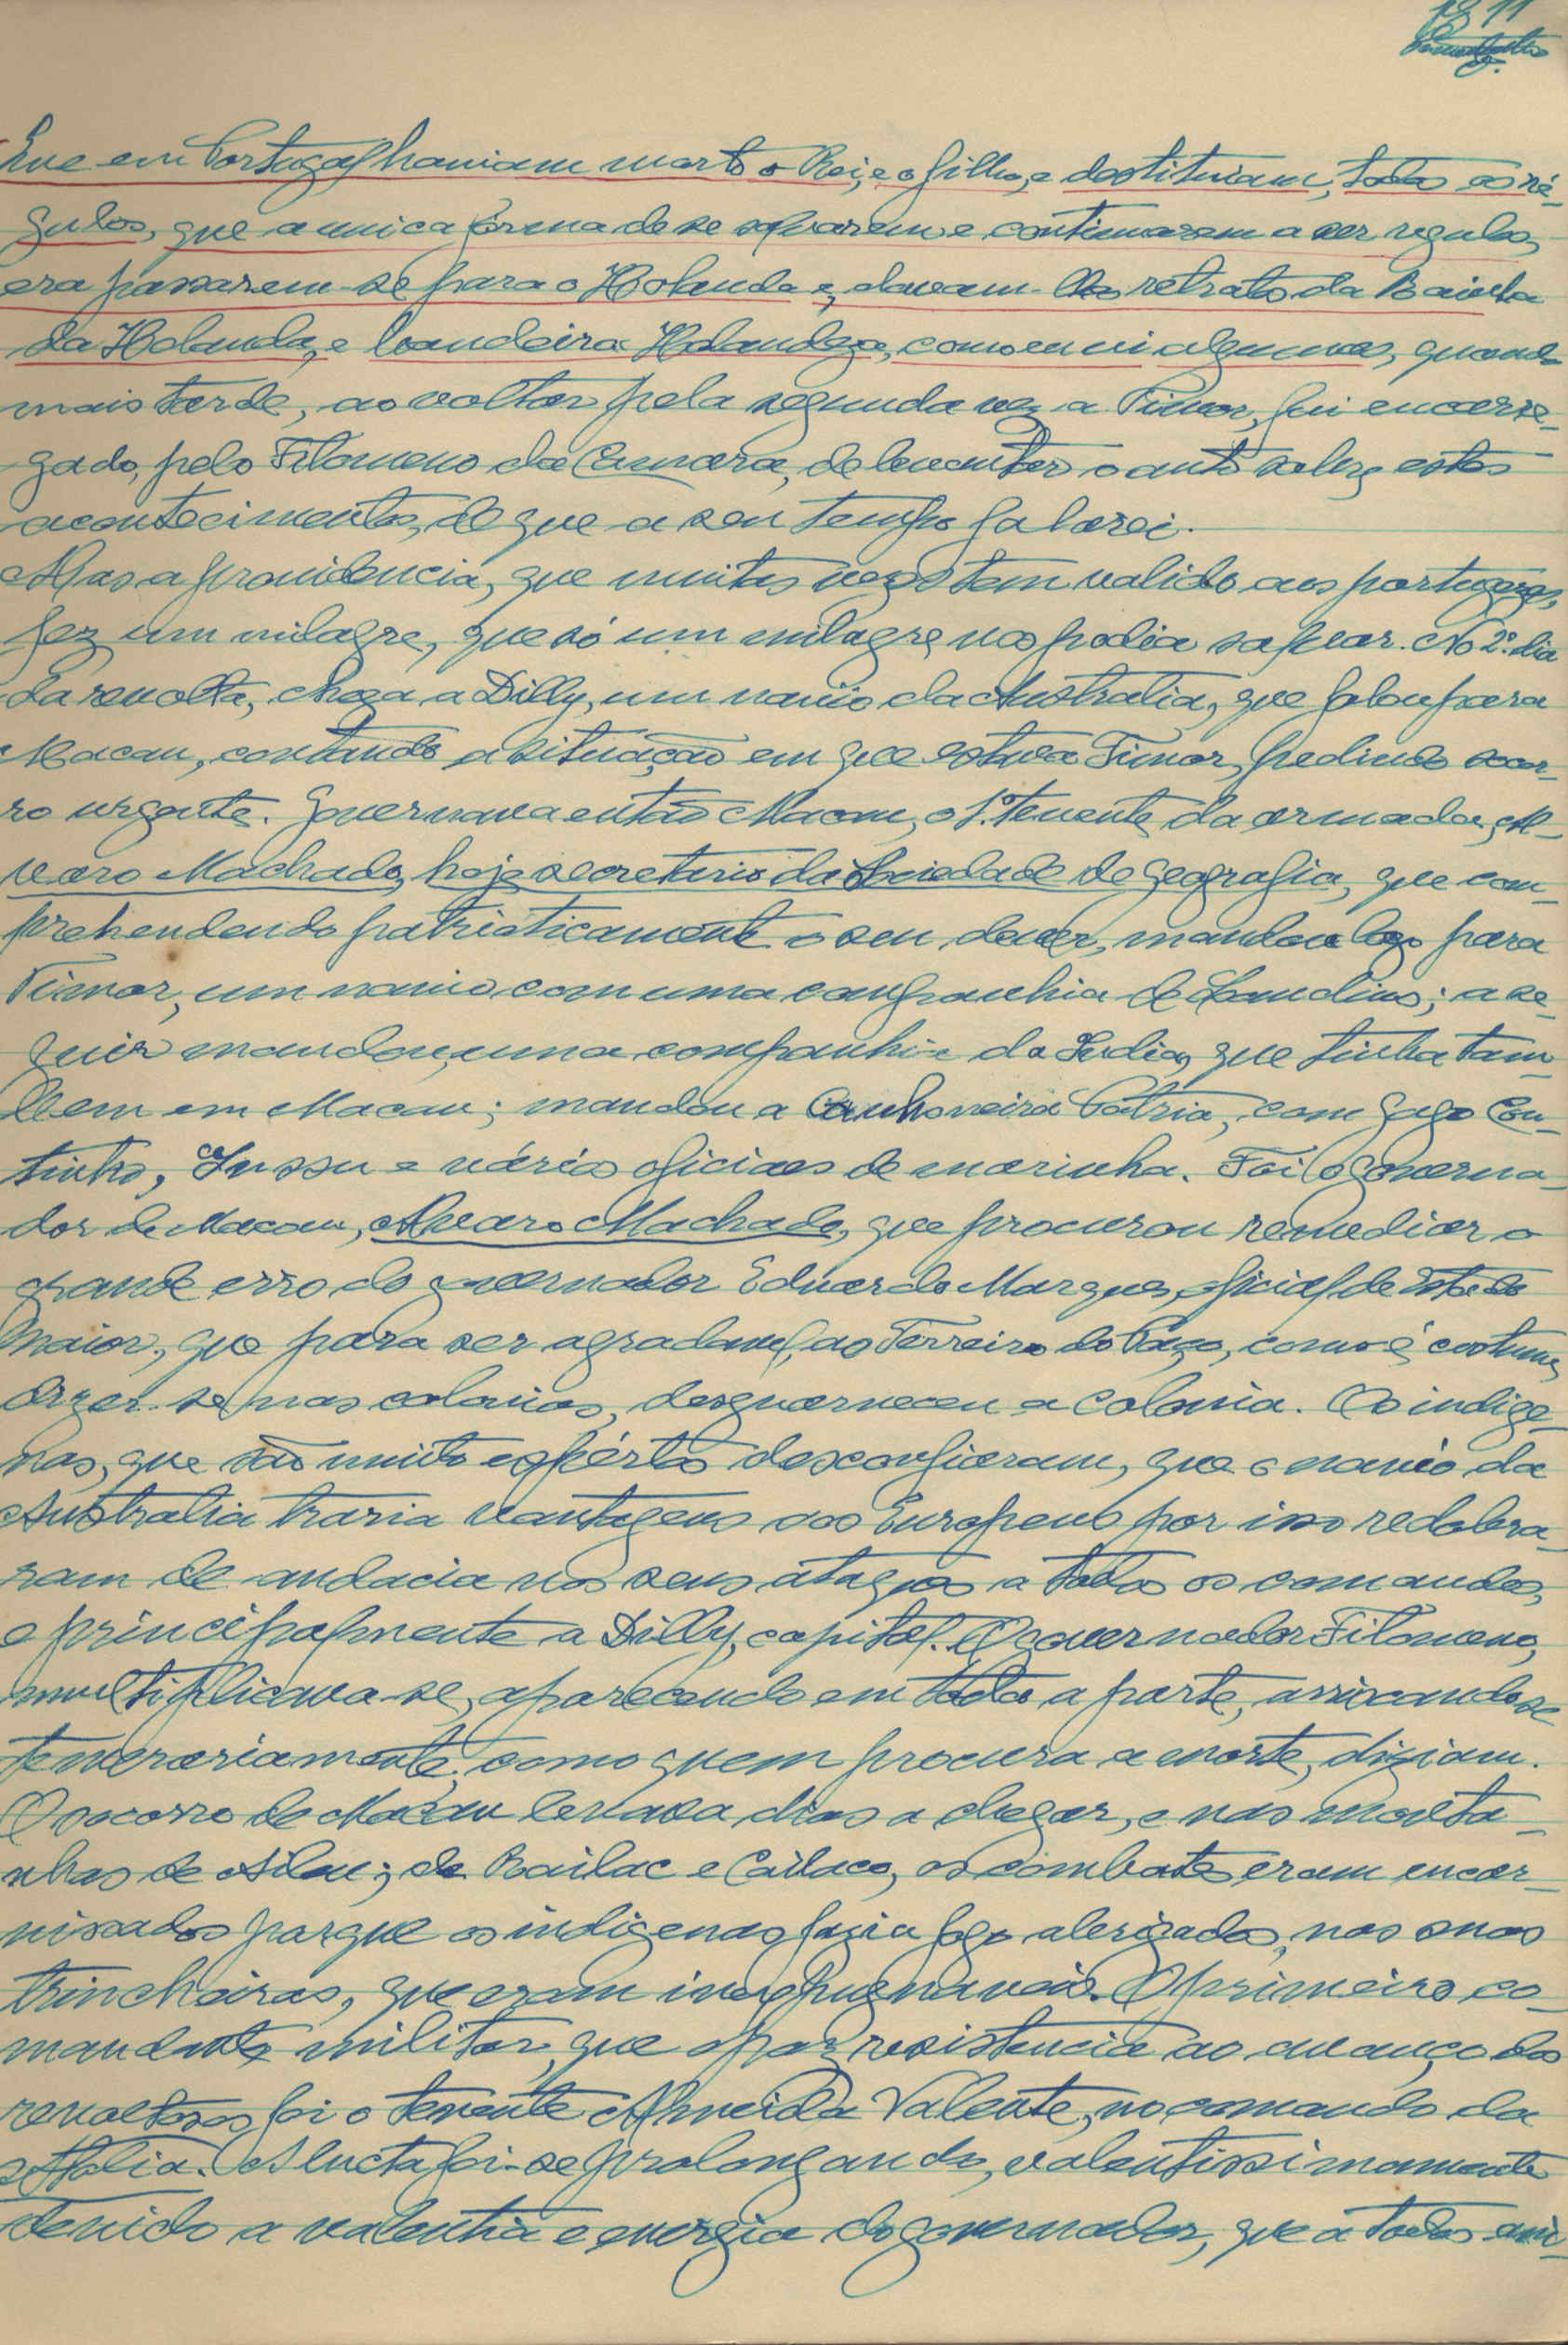 11
Que em Portugal haviam morto o Rei, e o filho, e destituiam, todos os ré-
gulos, que a unica forma de se salvarem e continuarem a ser regulos,
era passarem-se para o Holanda e, davam-lhes retrato da Rainha
da Holanda, e bandeira Holandeza, como eu vi algumas, quando
mais tarde, ao voltar pela segunda vez a Timor, fui encarre-
gado, pelo Filomeno da Camara, de levantar o auto sobre estes
acontecimentos, de que a seu tempo falarei.
Mas a providencia, que muitas vezes tem valido aos portuguezes,
fez um milagre, que só um milagre nos podia salvar. No 2º dia
da revolta, chega a Dilly, um navio da Australia, que falou para
Macau, contando a situação em que estava Timor, pedindo socor-
ro urgente. Governava então Macau, o 1º tenente da armada, Al-
varo Machado, hoje secretario da Sociedade de Geografia, que com-
prehendendo patrioticamente o seu dever, mandou logo para
Timor, um navio com uma companhia de Landins; a se-
guir mandou, uma companhia da India, que tinha tam-
bem em Macau; mandou a Canhoneira Patria, com Gago Cou-
tinho, e vários oficiaes de marinha. Foi o governa-
dor de Macau, Alvaro Machado, que procurou remediar o
grande erro do governador Eduardo Marques, oficial de Estado
Maior, que para ser agradavel, ao Terreiro do Paço, como é costume
se nas colonias, desguarneceu a colonia. Os indige-
nas, que são muito espértos desconfiaram, que o navio da
Australia traria vantagens aos Europeus por isso redobra-
ram de audacia nos seus ataques a todos os comandos,
e principalmente a Dilly, capital. O governador Filomeno,
multiplicava-se, aparecendo em toda a parte, arriscando-se
temerariamente, como quem procura a morte, diziam.
O socorro de Macau levava dias a chegar, e nas monta-
nhas de Aileu; de Railac e Cailaco, os combates eram encar-
nisados porque os indigenas fazia fogo abrigados, nas suas
trincheiras, que eram inexpugnaveis. O primeiro co-
mandante militar, que opoz resistencia ao avanço dos
revoltosos foi o tenente Almeida Valente, no comando da
Hatolia. A lucta foi-se prolongando, valentissimamente
devido a valentia e energia do governador, que a todos ani-